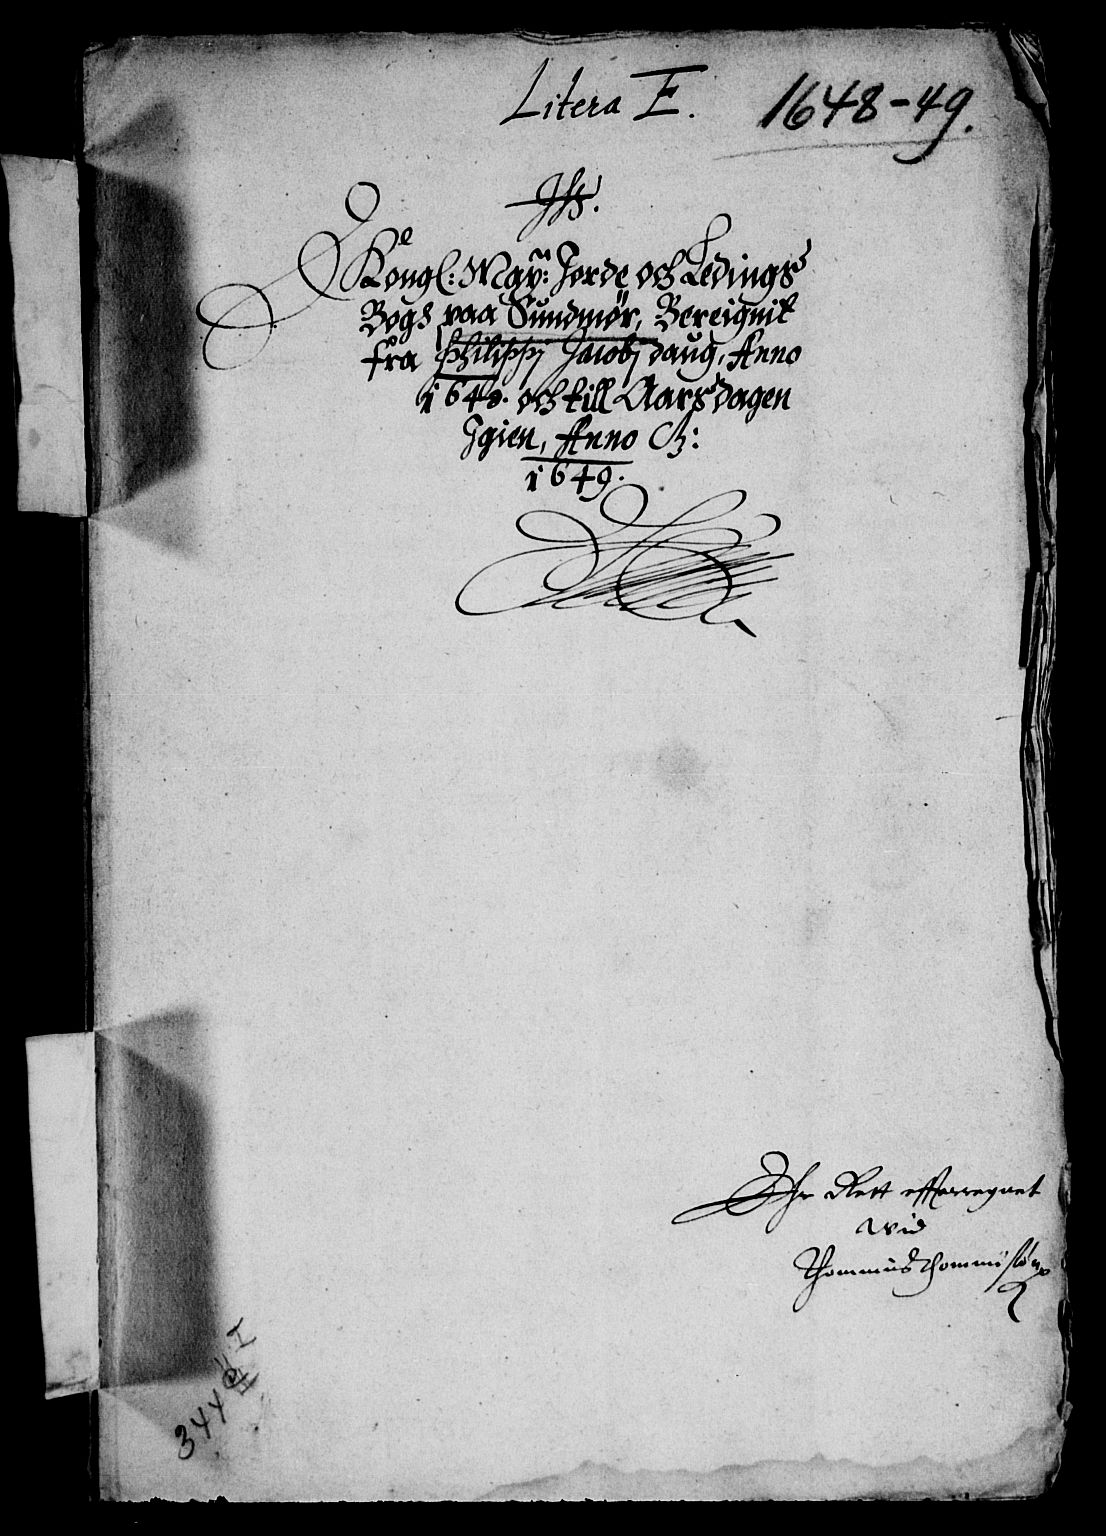 Litera E. 1648-49.
Jhs.
Kongl: May: Jorde och Ledings
Bogh paa Sundmør, Bereignit
fra Philippj Jacobj daug, Anno
1648. och till Aarsdagen
Igien, Anno Etc:
1649.
Ehr Rett effterregnet
wid
Thommis Thommisøn
344